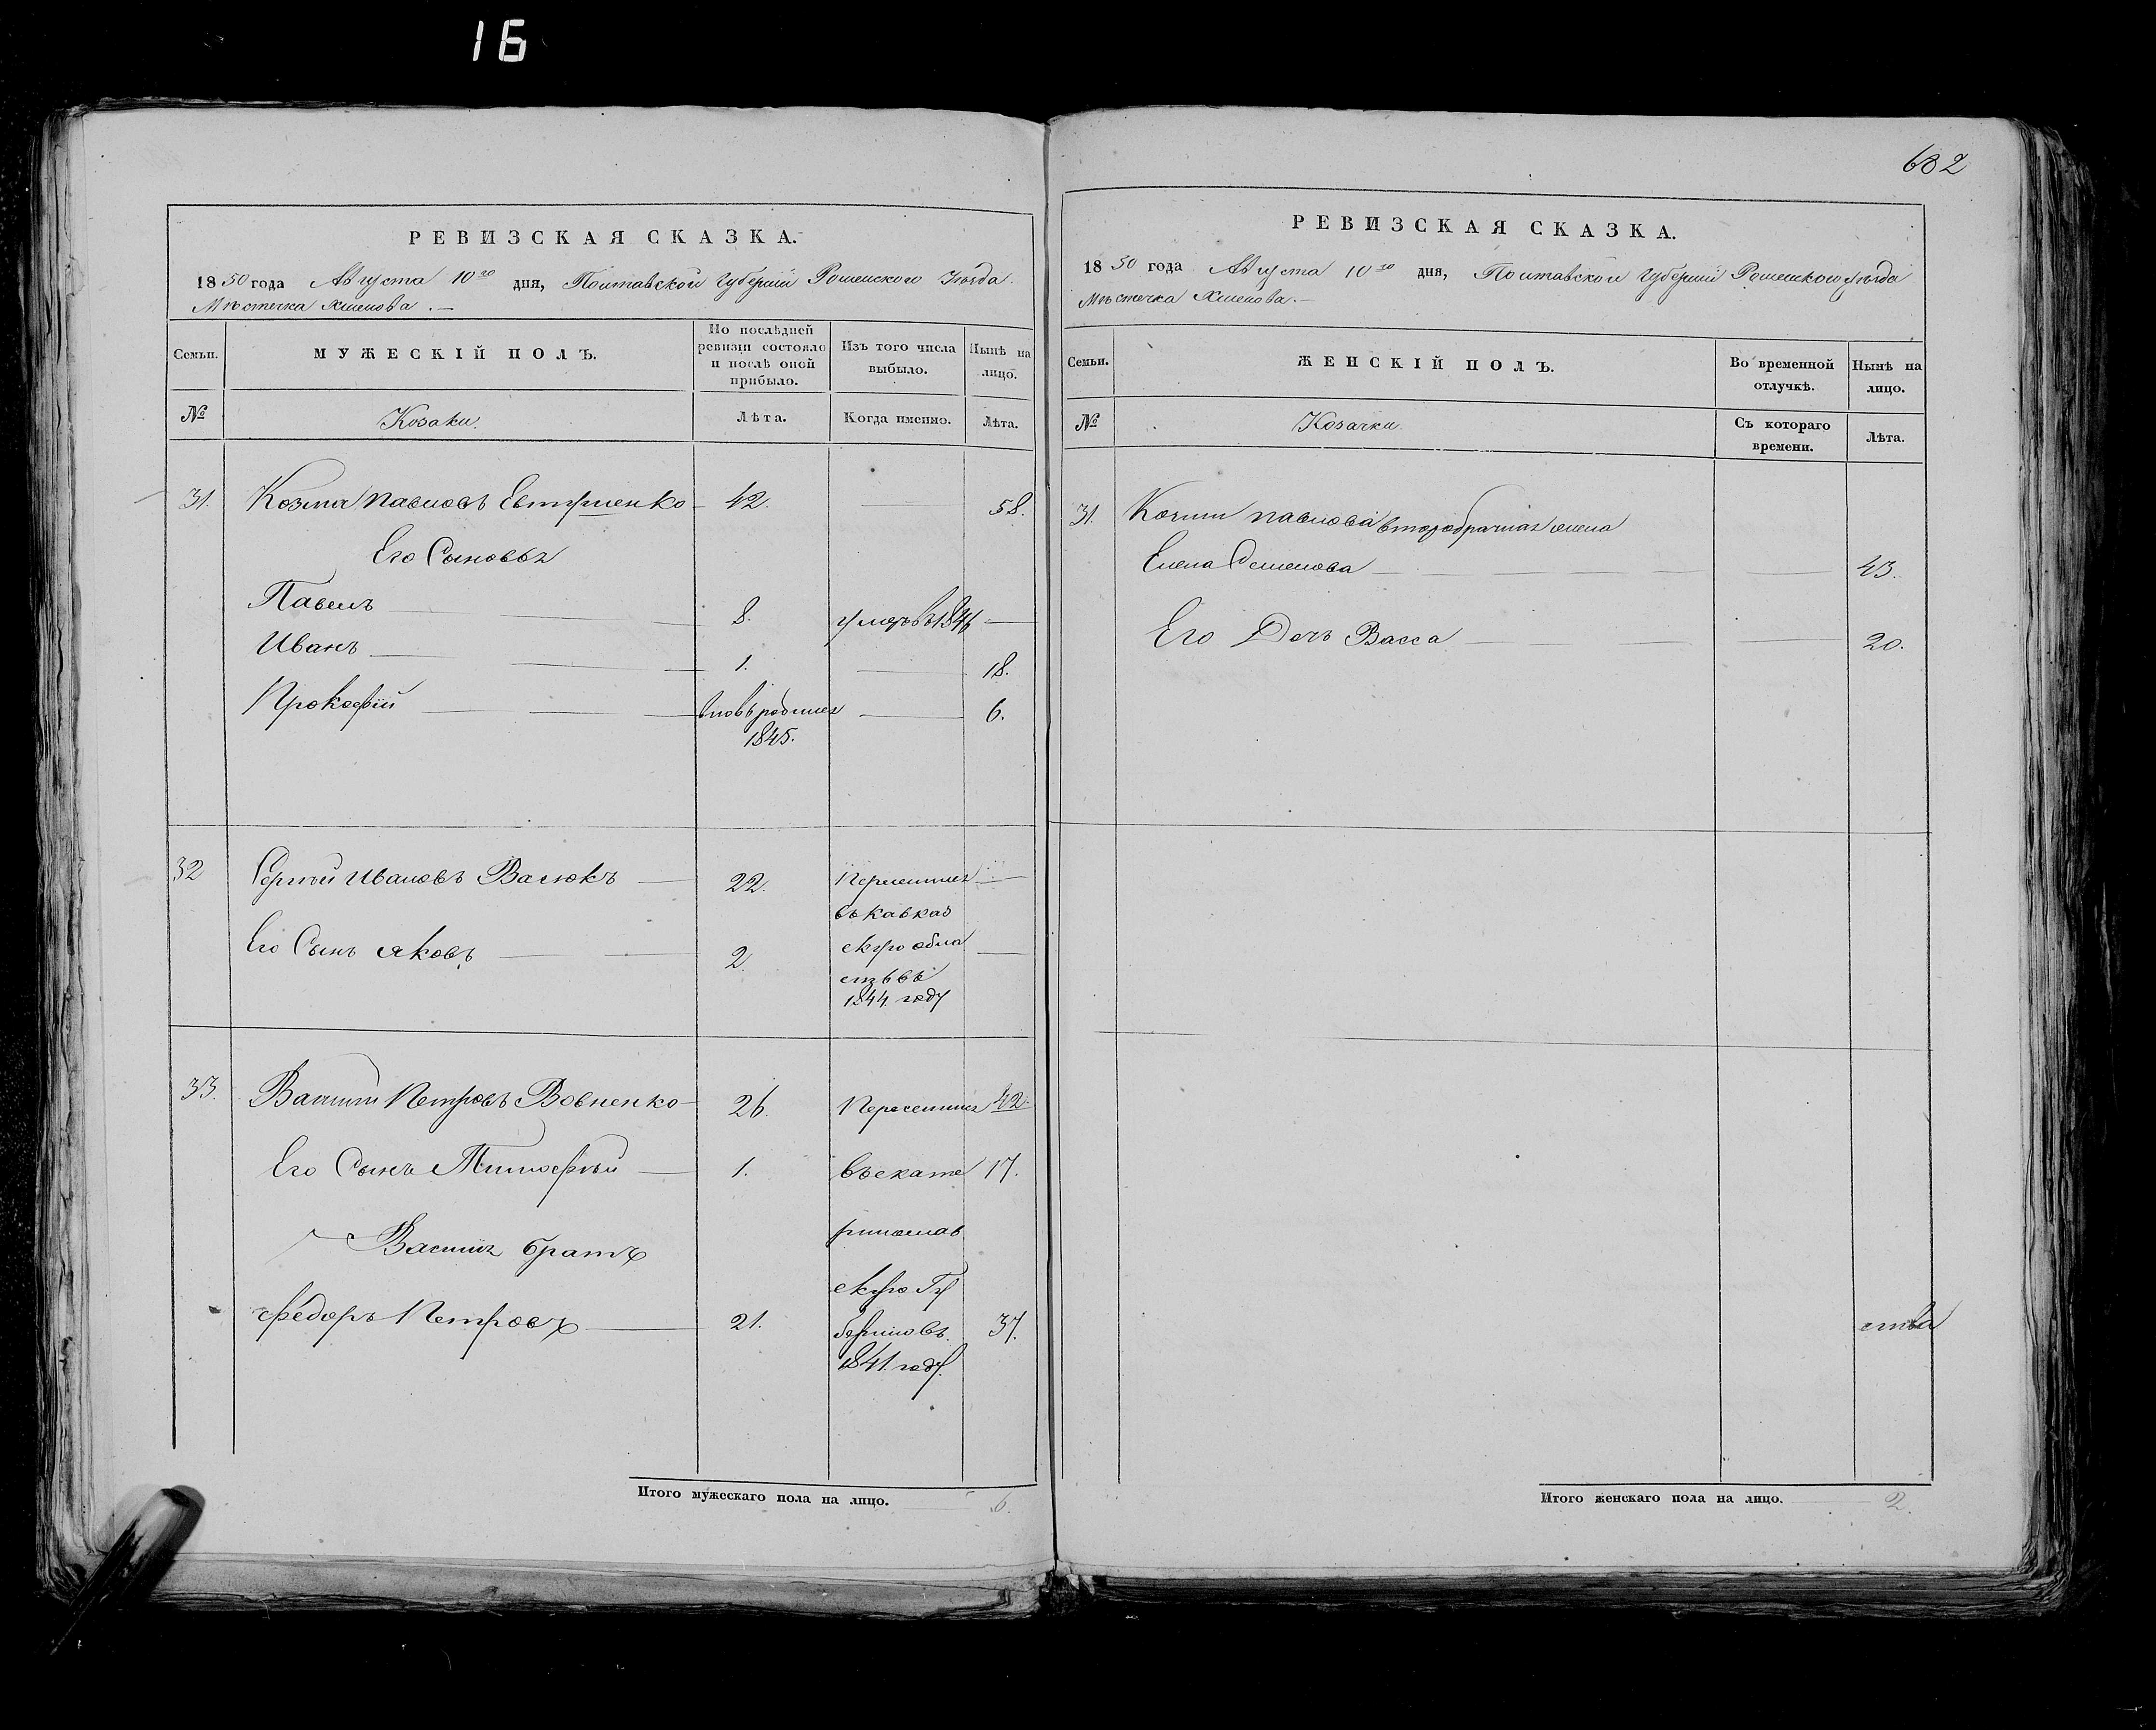 16
682
РЕВИЗСКАЯ СКАЗКА.
1850 года Августа 10го дня, Полтавской Губернии Роменского Уѣзда
Мѣстечка Хмелова.
Семьи.
МУЖЕСКІЙ ПОЛЪ.
По послѣдней ревизіи состояло и послѣ оной прибыло.
Изъ того числа выбыло.
Нынѣ на лицо.
№
Козаки.
Лѣта.
Когда именно.
Лѣта.
31. Козма Павловъ Евтушенко 42. 58.
Его Сыновья
Павелъ 8. умеръ въ 1846
Иванъ 1. 18.
Прокофій вновь родился 6.
1845.
32 Сергѣй Ивановъ Валюкъ 22. Переселился
въ Кавказ
Его Сынъ Яковъ 2 скую обла
сть въ
1844. году
33. Василій Петровъ Вовненко 26. Переселился 42.
Его Сынъ Тимофѣй 1. въ екате 17.
ринослав
Василія братъ
скую Гу
Федоръ Петровъ 21. бернію въ 37.
1841. году.
Итого мужескаго пола на лицо. 6.
РЕВИЗСКАЯ СКАЗКА.
1850 года Августа 10го дня, Полтавской Губерніи Роменскою Уѣзда
Мѣстечка Хмелова.
Семьи.
ЖЕНСКІЙ ПОЛЪ.
Во временной отлучкѣ.
Нынѣ на лицо.
№
Козачки
Съ котораго времени.
Лѣта.
31. Козмы Павлова второбрачная жена
Елена Семенова 43.
Его Дочь Васса 20.
Итого женскаго пола на лицо. 2.